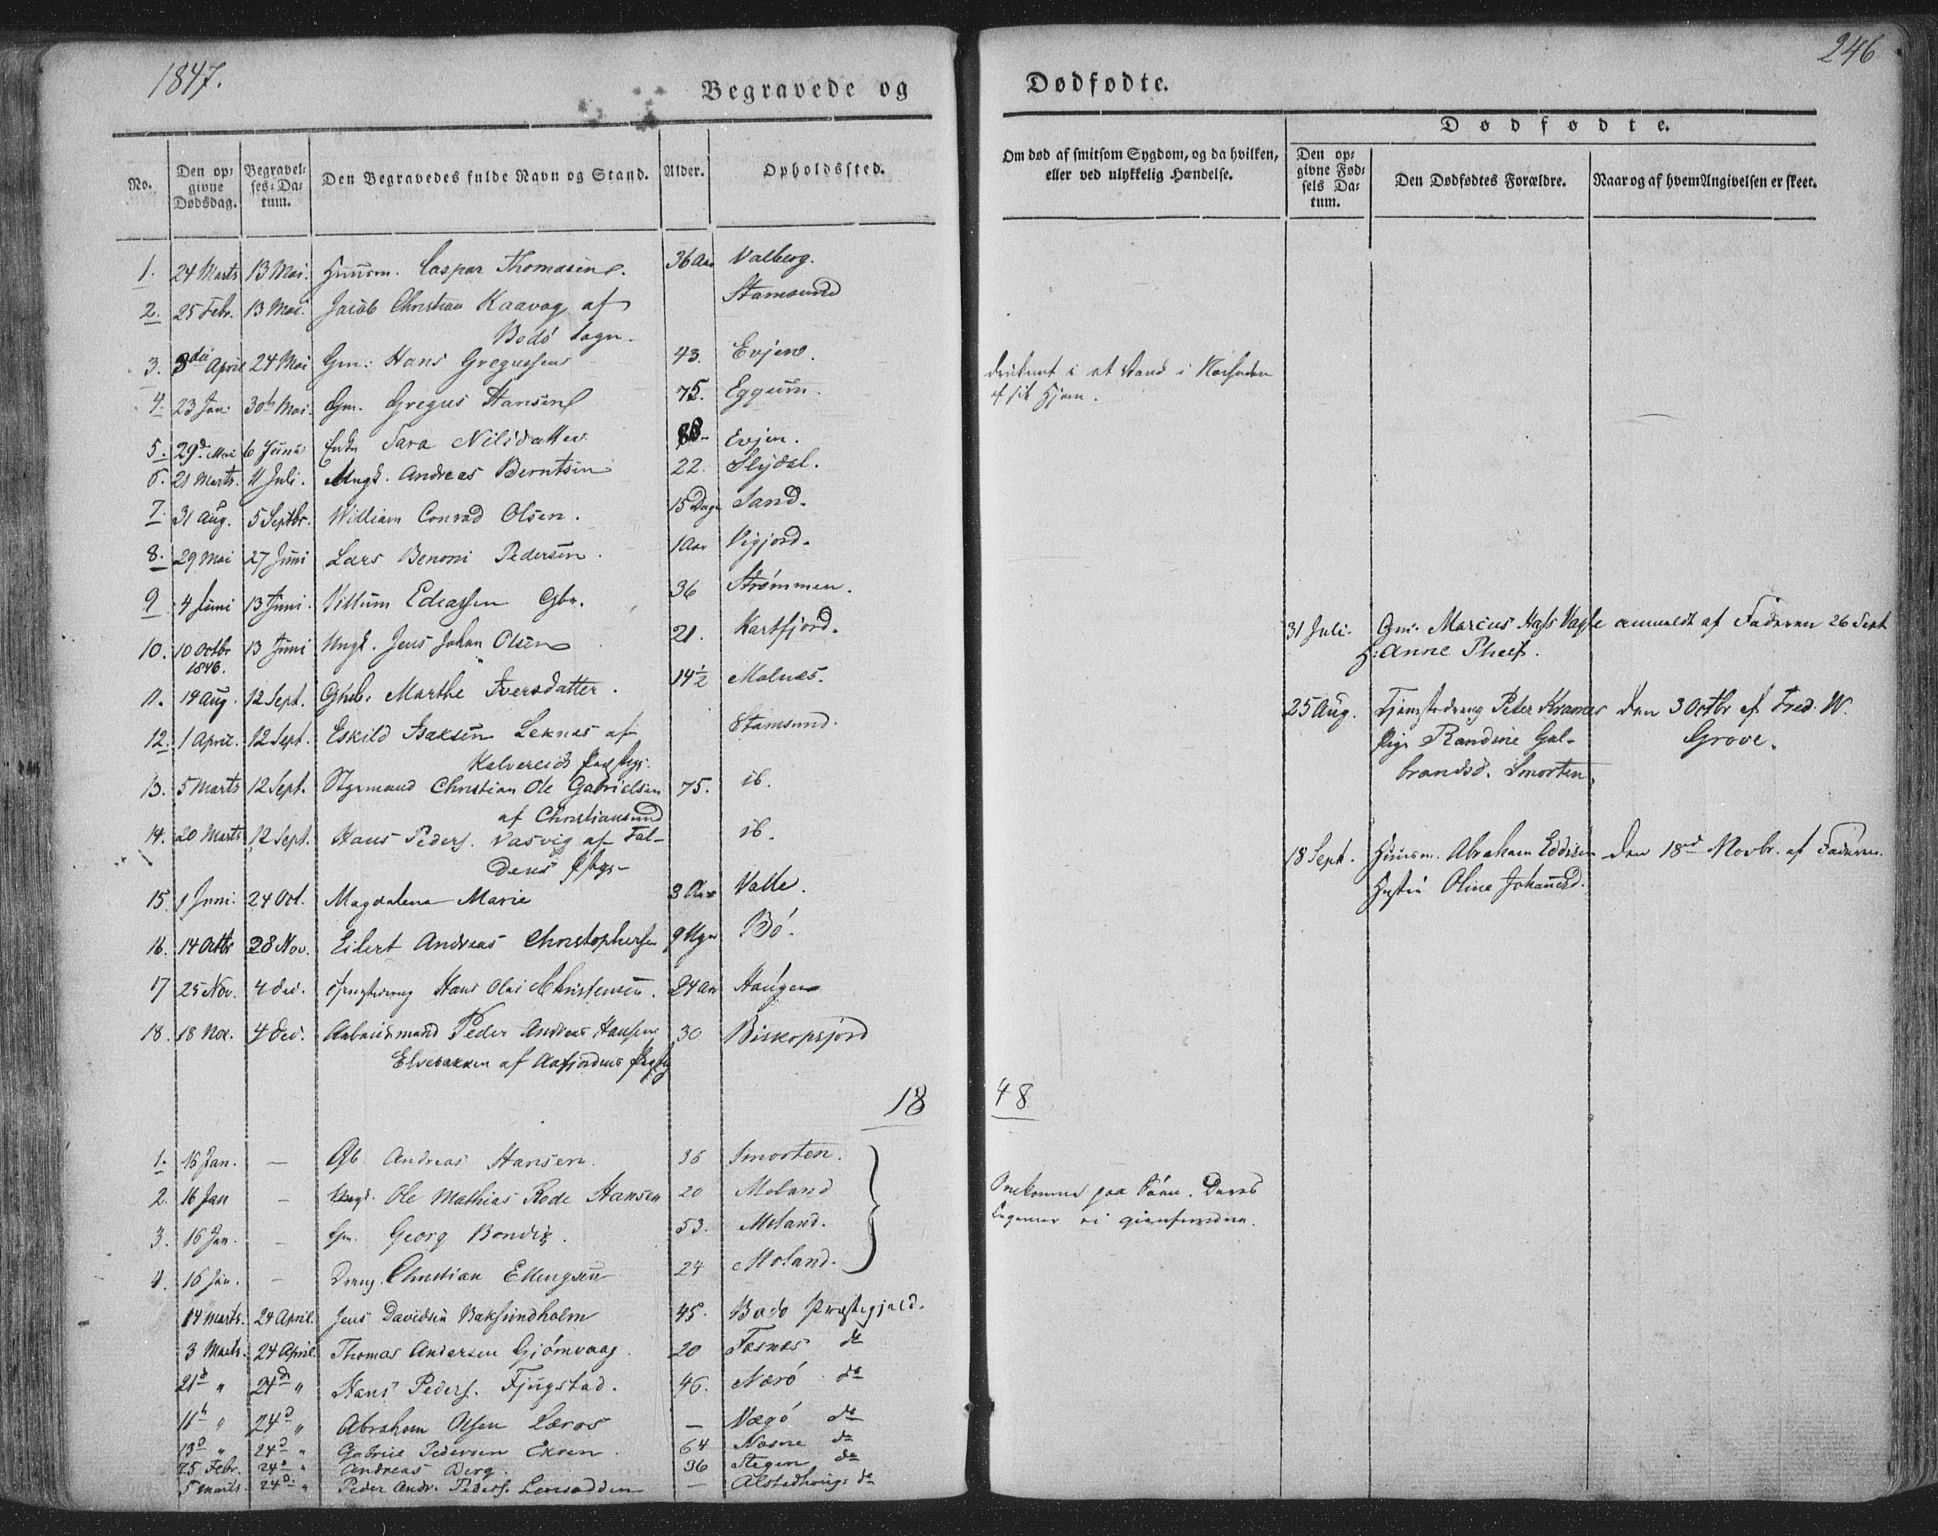 1847.
Begravede og
No.
Den opgivne Dødsdag.
Begravelses-Datum.
Den Begravedes fulde Navn og Stand.
Alder.
Opholdssted.
1. 24 Marts 13 Mai. Huusm. Caspar Thomasen. 36 Aar Valberg.
2. 25 Febr. 13 Mai. Jacob Christian Kaavog af Stamsund
Bodø Sogn.
3. April 24 Mai Gm: Hans Gregussen 43. Evjen.
4. 23 Jan. 30 Mai. Gm. Gregus Hansen 75. Eggum.
5. 29 Mai 6 Juni Enke Sara Nilsdatter 88 Evjen.
6. 21 Marts. 11 Juli. Ungk. Andreas Berntsen 22. Slydal.
7. 31 Aug. 5 Septbr. William Conrad Olsen. 15 Dage Sand.
8. 29 Mai 27 Juni Lars Benoni Pedersen. 1 Aar Vigjord.
9 4 Juni 13 Juni. Villum Gbr. 36 Strømmen.
10. 10 Octbr 13 Juni Ungk. Jens Johan Olsen 21. Kartfjord.
1846.
11. 14 Aug. 12 Sept. Marthe Iversdatter. 14½ Molnæs.
12. 1 April. 12 Sept. Eskild Isaksen Leknes af Stamsund.
13. 5 Marts 12 Sept. Styrmand Christian Ole Gabrielsen 75. ib.
af Christiansund
14. 20 Marts 12 Sept. Hans Peders. Vasvig af ib.
15. 1 Juni. 24 Oct. Magdalena Marie 3 Aar Valle.
16. 14 Octbr 28 Nov. Eilert Andreas Christophersen 9 Uger Bø.
17 25 Nov. 4 Dec. Hans Olai Christensen. 24 Aar Haugen
18. 18 Nov. 4 Dec. Arbeidsmand Peder Andreas Hansen 30 Biskopsjord
Elvebakken af Aafjordens
18
1. 16 Jan. — Gb. Andreas Hansen. 36 Smorten.
2. 16 Jan — Ungk. Ole Mathias Rode Hansen 20 Moland
3. 16 Jan. — Gm. Georg 53. Moland.
4. 16 Jan. — Dreng. Christian Ellingsen 24 Moland.
14 Marts. 24 April. Jens Davidsen Baksundholm 45. Bodø Præstegjeld.
3 Marts. 24 April. Thomas Andersen Gjømvaag. 20 Fosnæs do
21 " 24 " Hans Peders. Fjugstad. 46. Nærø do
11 " 24 " Abraham Olsen Læros — Vægø do
13 " 24 " Gabriel Pedersen 64 Nesne do
25 Febr. 24 " Andreas Berg. 36 Stegen do
5 Marts. 24 " Peder Andr. Peders. — Alstedhoug: do
246
Dødfødte.
Om død af smitsom Sygdom, og da hvilken, eller ved ulykkelig Hændelse.
Dødfødte.
Den opgivne Fødsels Datum.
Den Dødfødtes Forældre.
Naar og af hvem Angivelsen er skeet.
druknet i et Vand i Nærheden
af sit Hjem.
31 Juli. Gm. Marcus anmeldt af Faderen 26 Sept
H: Anne
25 Aug. Tjenestedreng Peter den 3 Octbr af Fred. W.
Pige Randine Gul- Grove.
brandsd. Smorten.
18 Sept. Huusm. Abraham den 18 Novbr. af Faderen.
Hustru Oline Johansd.
48
Omkomne paa Søen. Deres
Legemer ei gjenfundne.